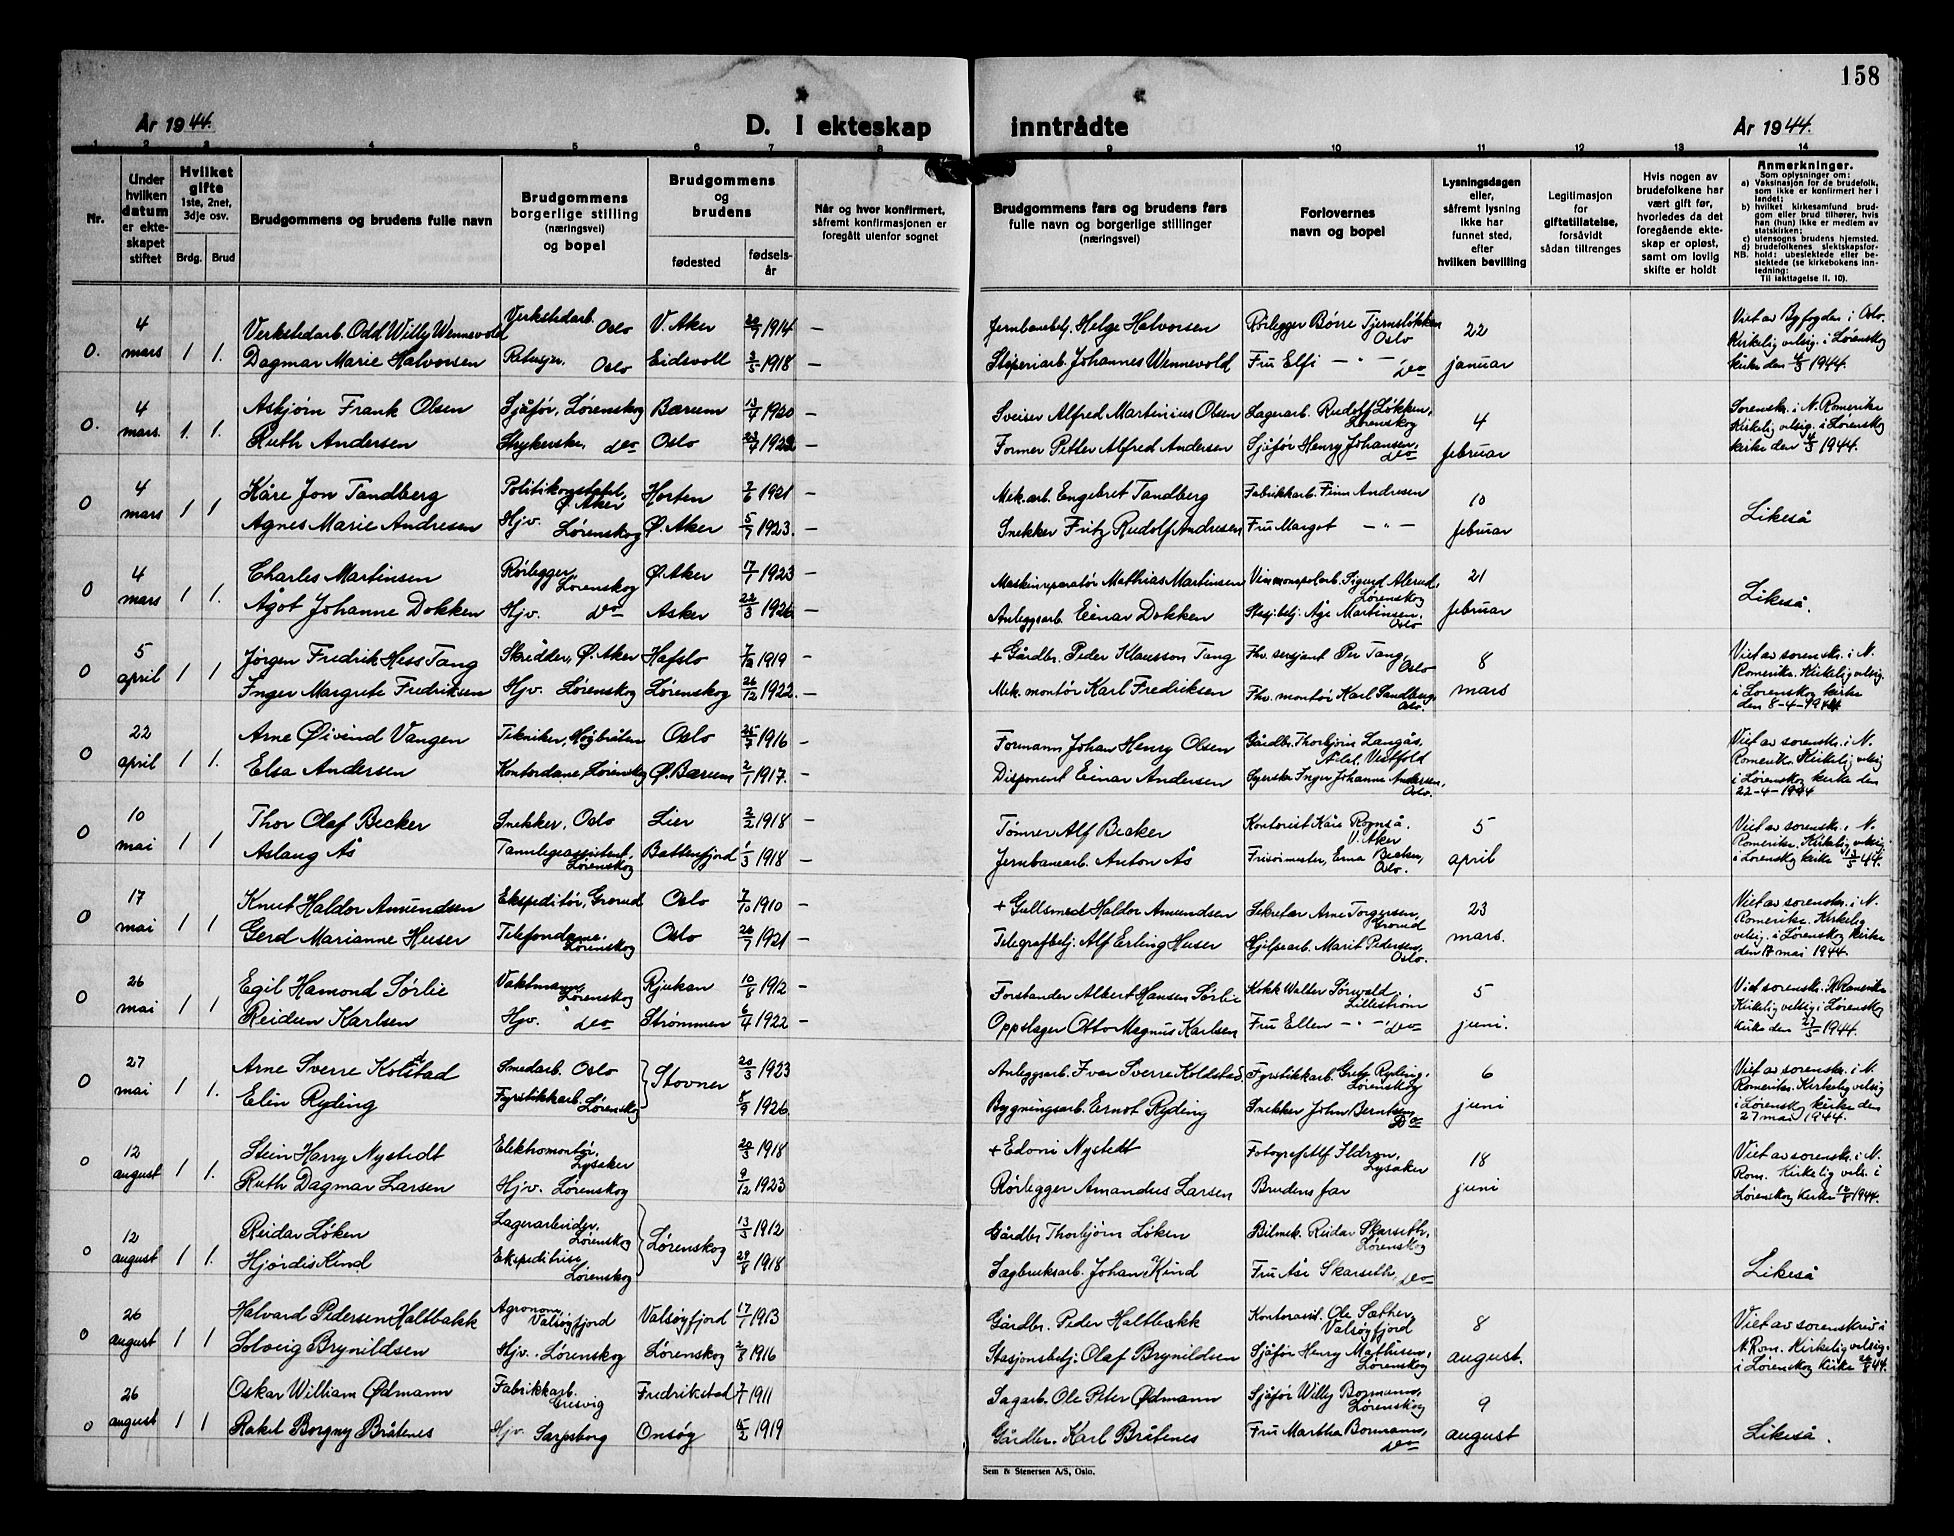 158
År 1944.
D. I ekteskap inntrådte
År 1944.
1 2 3 4 5 6 7 8 9 10 11 12 13 14
Nr.
Under hvilken datum er ekteskapet stiftet
Hvilket gifte 1ste, 2net, 3dje osv.
Brdg. Brud
Brudgommens og brudens fulle navn
Brudgommens borgerlige stilling (næringsvei) og bopel
Brudgommens og brudens
fødested
fødselsår
Når og hvor konfirmert, såfremt konfirmasjonen er foregått utenfor sognet
Brudgommens fars og brudens fars fulle navn og borgerlige stillinger (næringsvei)
Forlovernes navn og bopel
Lysningsdagen eller, såfremt lysning ikke har funnet sted, efter hvilken bevilling
Legitimasjon for giftetillatelse, forsåvidt sådan tiltrenges
Hvis nogen av brudefolkene har vært gift før, hvorledes da det foregående ekteskap er opløst, samt om lovlig skifte er holdt
Anmerkninger.
Som oplysninger om:
a) Vaksinasjon for de brudefolk, som ikke er konfirmert her i landet;
b) hvilket kirkesamfund brudgom eller brud tilhører, hvis han (hun) ikke er medlem av statskirken;
c) utensogns brudens hjemsted.
d) brudefolkenes slektskapsforhold: ubeslektede eller beslektede (se kirkebokens innledning:
NB.
Til iakttagelse II. 10).
0. 4 mars 1 1. Verkstedarb. Odd Willy Wennevold Verkstedarb. Oslo V. Aker 1914 — Jernbanebetj. Helge Halvorsen Rørlegger Børre Tjernsløkken Oslo 22 januar Viet av Byfogden i Oslo. Kirkelig velsig. i Lørenskog kirke den 4/3 1944.
Dagmar Marie Halvorsen Retusjør. Oslo Eidsvoll 3/5 1918 — Støperiarb. Johannes Wennevold Fru Elfi — " — do
0. 4 mars. 1. 1. Asbjørn Frank Olsen Sjåfør, Lørenskog Bærum 13/4 1920 — Sveiser Alfred Martinius Olsen Lagerarb. Rudolf Løkken, Lørenskog 4 februar Sorenskr. i N. Romerike Kirkelig velsig. i Lørenskog kirke den 4/3 1944.
Ruth Andersen Strykerske, do Oslo 1922 — Former Petter Alfred Andersen Sjåfør Henry Johansen, do
0 4 mars 1 1 Kåre Jon Tandberg Ø. Aker Horten 7/6 1921 — Mek. arb. Engebret Tandberg Fabrikkarb. Finn Andresen 10 februar Likeså
Agnes Marie Andresen Hjv. Lørenskog Ø. Aker 5/7 1923. — Snekker Fritz Rudolf Andresen Fru Margot — " —
0 4 mars 1 1. Charles Martinsen Rørlegger, Lørenskog Ø. Aker 17/1 1923 — Maskinreparatør Mathias Martinsen Vinmonopolarb. Sigurd Alerud, Lørenskog 21 februar Likeså.
Ågot Johanne Dokken Hjv. do Asker 22/3 1926 — Anleggsarb. Einar Dokken Åge Martinsen. Oslo
0 5 april 1 1 Jørgen Fredrik Hess Tang Skredder, Ø. Aker Hafslo 7/12 1919 — + Gårdbr. Peder Klausson Tang Fhv. sersjant Per Tang, Oslo 8 mars Viet av sorenskr. i N. Romerike. Kirkelig velsig. i Lørenskog kirke den 8-4-1944
Inger Margrete Fredriksen Hjv. Lørenskog Lørenskog 26/12 1922. — Mek. montør Karl Fredriksen Fhv. montør Karl Sandberg, Oslo.
0 22 april 1 1. Arne Øivind Vangen Tekniker, Høybråten Oslo 25/7 1916 — Formann Johan Henry Olsen Gårdbr. Thorbjørn Langås, Vestfold Viet av sorenskr. i N. Romerike Kirkelig velsig i Lørenskog kirke den 22-4-1944
Elsa Andersen Kontordame, Lørenskog Ø. Bærum 2/1 1917. — Disponent Einar Andersen Syerske Inger Johanne Andersen, Oslo.
0 10 mai 1 1 Thor Olaf Becker Snekker, Oslo Lier 2/2 1918 — Tømrer Alf Becker Kontorist Kåre Rognså. V. Aker 5 april Viet av sorenskr. i N. Romerike. Kirkelig velsig i Lørenskog kirke 13/5 44.
Aslaug Ås Tannlegeassistent, Lørenskog Battenfjord 1/3 1918 — Jernbanearb. Anton Ås Frisørmester, Erna Becker, Oslo.
0 17 mai 1 1 Knut Haldor Amundsen Ekspeditør, Grorud Oslo 7/10 1910 — + Gullsmed Haldor Amundsen Sekretær Arne Torgersen, Grorud 23 mars. Viet av sorenskr. i N. Romerike. Kirkelig velsig. i Lørenskog kirke den 17 mai 1944.
Gerd Marianne Huser Telefondame, Lørenskog Oslo 26/7 1921 — Telegrafbetj. Alf Erling Huser Hjelpearb. Marit Pedersen, Oslo.
0 26 mai 1 1 Egil Hamond Sørlie Vaktmann, Lørenskog Rjukan 10/8 1912 — Forstander Albert Hansen Sørlie Kokk Walter Sørwald, Lillestrøm 5 juni. Viet sorenskr. N. Romerike Kirkelig velsig. i Lørenskog kirke den 27/5 1944.
Reidun Karlsen Hjv. do Strømmen 6/4 1922 — Oppslager Otto Magnus Karlsen Fru Ellen — " — do
0 27 mai 1 1. Arne Sverre Kolstad Smedarb. Oslo Stovner 20/3 1923 Anleggsarb. Ivar Sverre Koldstad. Fyrstikkarb. Grete Ryding. Lørenskog 6 juni Viet av sorenskr. i N. Romerike. Kirkelig velsig i Lørenskog kirke den 27 mai 1944.
Elin Ryding Fyrstikkarb. Lørenskog 8/9 1926. Bygningsarb. Ernst Ryding Snekker John Berntsen, Do
0 12 august 1 1. Stein Harry Nystedt Elektromontør, Lysaker 20/3 1918 + Edvin Nystedt Fotograf Alf Ildron, Lysaker 18 juni Viet av sorenskr. i N. Rom. Kirkelig vels. i Lørenskog kirke 12/8 1944.
Ruth Dagmar Larsen Hjv. Lørenskog 9/12 1923 Rørlegger Amandus Larsen Brudens far
0 12 august 1 1. Reidar Løken Lagerarbeider, Lørenskog Lørenskog 13/5 1912 Gårdbr Thorbjørn Løken Bilmek. Reidar Skarseth, Lørenskog Likeså
Hjørdis Kind Ekspeditrise Lørenskog 29/8 1918 Sagbruksarb. Johan Kind Fru Åse Skarseth, do
0 26 august 1 1 Halvard Pedersen Haltbakk Agronom, Valsøyfjord Valsøyfjord 17/1 1913 Gårdbr. Peder Haltbakk Kontorassit. Ole Sæther, Valsøyfjord 8 august. Viet av sorenskriv i N. Rom. Kirkelig velsig. i Lørenskog kirke 26/8 44.
Solveig Brynildsen Hjv. Lørenskog Lørenskog 2/8 1916 Stasjonsbetj. Olaf Brynildsen Sjåfør Henry Mathisen, Lørenskog
0 26 august 1 1 Oskar William Ødmann Fabrikkarb. Greåvig Fredrikstad 1911 Sagarb. Ole Peter Ødmann Sjåfør Willy Bormann, Lørenskog 9 august Likeså.
Rakel Borgny Bråtenes Hjv. Sarpsborg Onsøy 1919 Gårdbr. Karl Bråtenes Fru Martha Bormann, do
Sem & Stenersen A/S, Oslo.